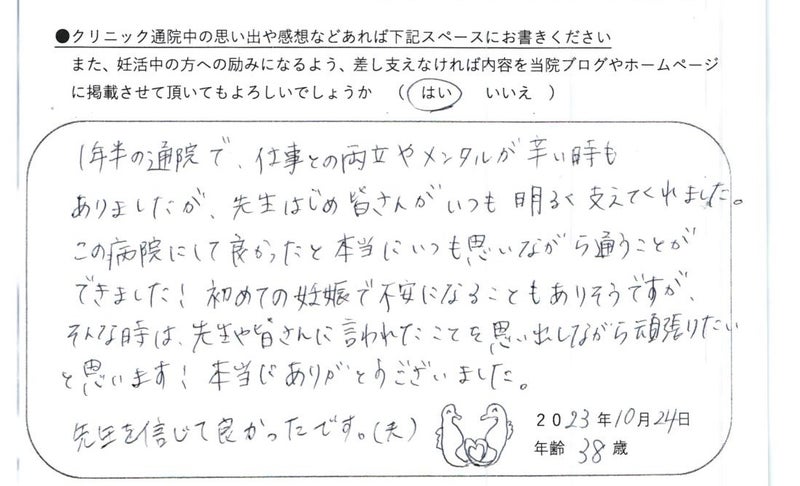 ●クリニック通院中の思い出や感想などあれば下記スペースにお書きください
また、妊活中の方への励みになるよう、差し支えなければ内容を当院ブログやホームページ
に掲載させて頂いてもよろしいでしょうか （ はい いいえ ）
1年半の通院で、仕事との両立やメンタルが辛い時も
ありましたが、先生はじめ皆さんがいつも明るく支えてくれました。
この病院にして良かったと本当にいつも思いながら通うことが
できました！初めての妊娠で不安になることもありそうですが、
そんな時は、先生や皆さんに言われたことを思い出しながら頑張りたい
と思います！本当にありがとうございました。
先生を信じて良かったです。(夫)
2023年10月24日
年齢 38歳